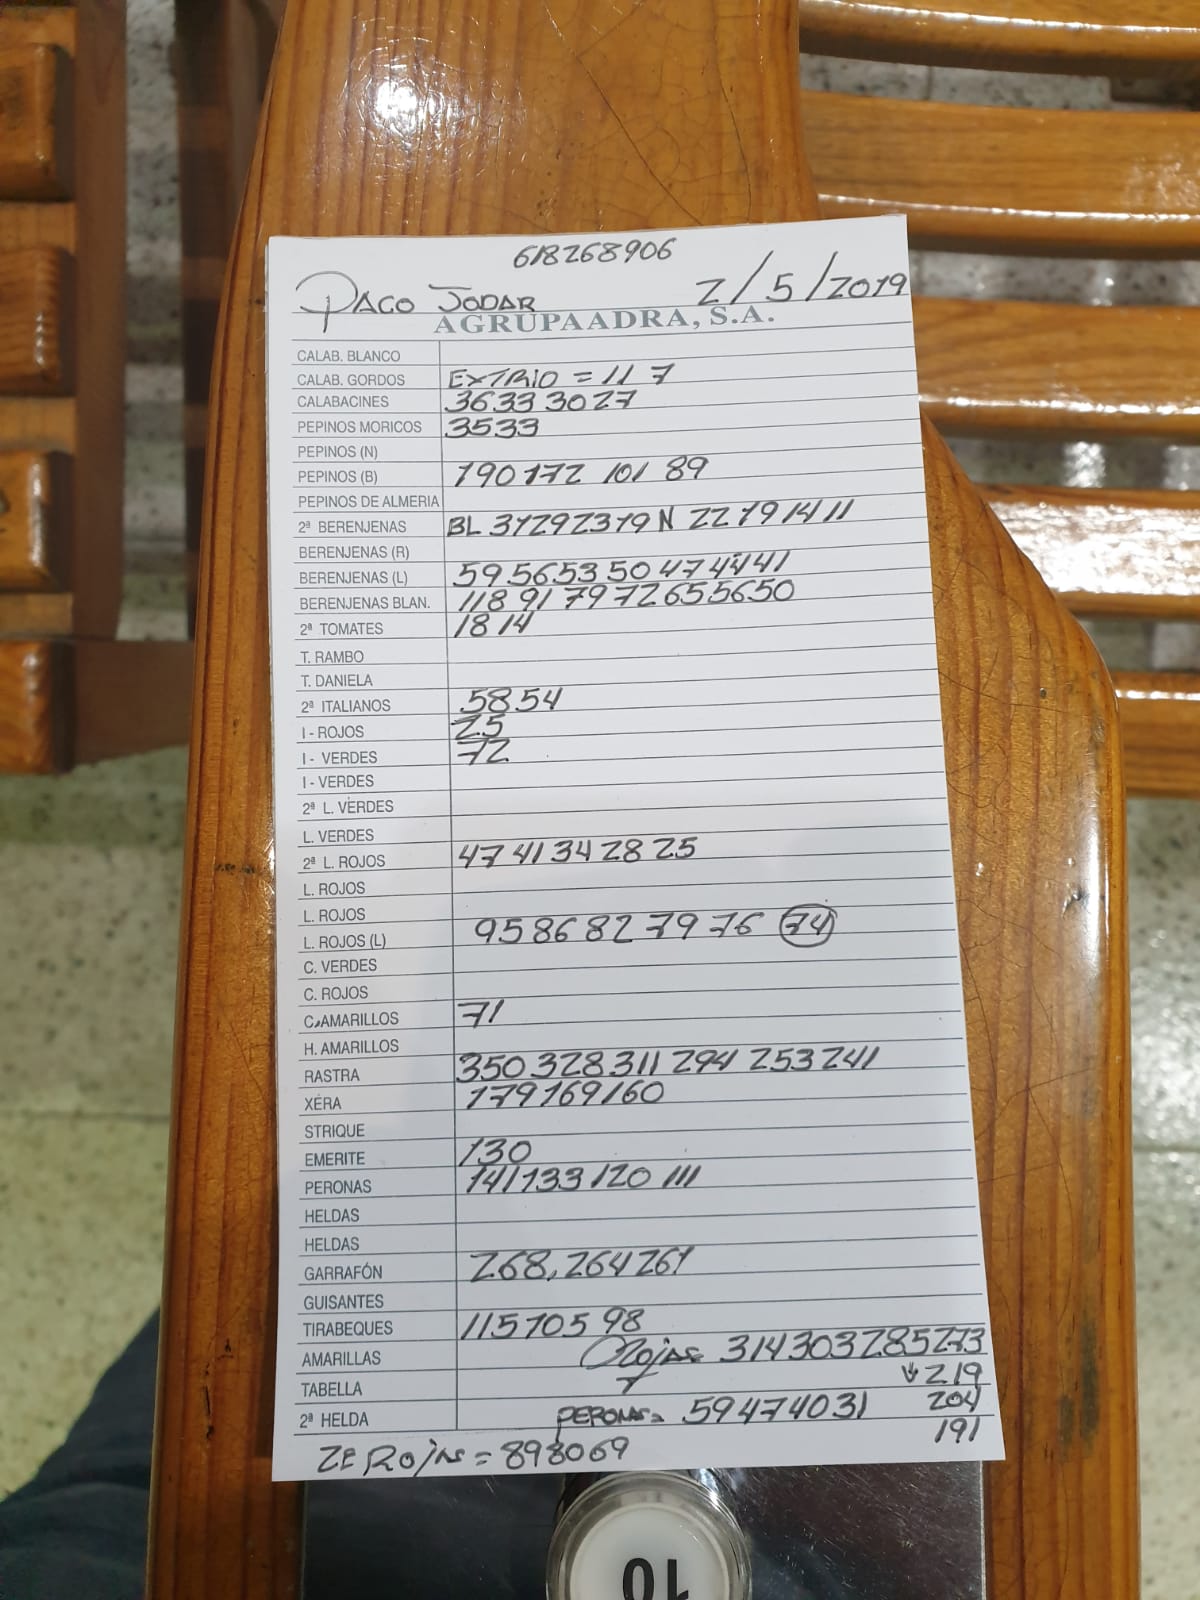 618268906
PACO JODAR 2/5/2019
AGRUPAADRA, S.A.
CALAB. BLANCO
CALAB. GORDOS EXTRIO = 11 7
CALABACINES 3633 30 27
PEPINOS MORICOS 3533
PEPINOS (N)
PEPINOS (B) 190 172 101 89
PEPINOS DE ALMERIA
2ª BERENJENAS BL 31292319 N 22 19 14 11
BERENJENAS (R)
BERENJENAS (L) 59 56 53 50 47 44 41
BERENJENAS BLAN. 118 91 79 72 65 56 50
2ª TOMATES 18 14
T. RAMBO
T. DANIELA
2ª ITALIANOS 58 54
I - ROJOS 25
I - VERDES 72
I - VERDES
2ª L. VERDES
L. VERDES
2ª L. ROJOS 47 41 34 28 25
L. ROJOS
L. ROJOS
L. ROJOS (L) 95 86 82 79 76 74
C. VERDES
C. ROJOS
C. AMARILLOS 71
H. AMARILLOS
RASTRA 350 328 311 294 253 241
XÉRA 179 169 160
STRIQUE
EMERITE 130
PERONAS 141 133 120 111
HELDAS
HELDAS
GARRAFÓN 268, 264 261
GUISANTES
TIRABEQUES 115 105 98
AMARILLAS Rojas 314 303 285 273
TABELLA 219
2ª HELDA PERONAS = 59 47 40 31 204
191
= 898069
10